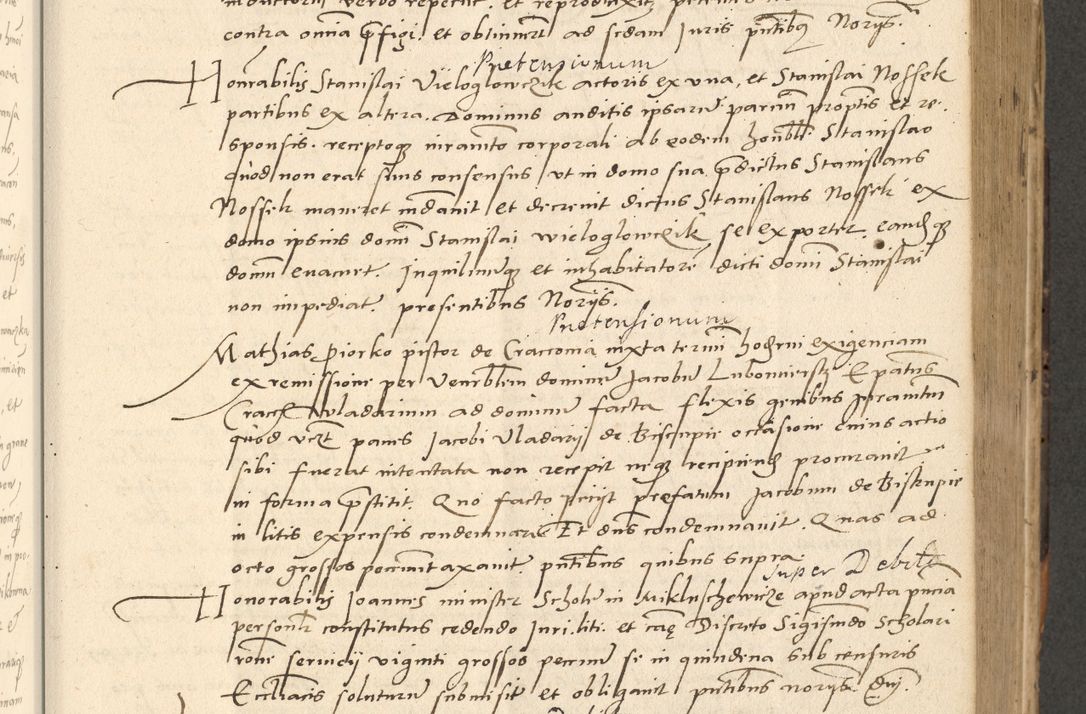 contra omnia pfigi. et obtinuert ad sedam Juris pntibq Norijs.
Pretensionum
Honrabilis Stanislai Vieloglowczik actoris ex vna, et Stanislai Nossek
partibus ex altera. Dominus auditis ipsarū parcium proptis et re
sponsis. receptoq iuramto corporali ab eodem honbli. Stanislao
quod non erat suus consensus, vt in domo sua pdictus Stanislaus
Nossek maneret mdauit et decreuit dictus Stanislaus Nossek ex
domo ipsius domi Stanislai wieloglowczik se exporter. eandq
domm euacuet. Inquilinuq et inhabitatore dicti domi Stanislai
non impediat. presentibus Norijs.
Pretensionum
Mathias Piorko pistor de Cracouia iuxta termi hoderni exigenciam
ex remissione per Venerblem dominū Jacobū Lubomiersky Epatus
Crach vladarium ad dominū facta flexis genibus juramtū
quod vert panis Jacobi Vladarij de Biscupie occasione cuius actio
sibi fuerat intentata non recepit neq recipiendi procurauit
in forma pstitit. Quo facto pecijt prefatum Jacobum de Biskupie
in litis expensis condemnaris Et dns condemnauit. Quas ad
octo grossos taxauit. pntibus quibus supra.
Super Debit
Honorabilis Joannes minister Scholæ in Mikluschewicze apud acta pncia
personlr constitutus cedendo Juri. liti. et caę Discreto Sigismdo Scholari
rone seruicij viginti grossos pecuniæ se in quindena sub censuris
Eccliacis soluturū submisit et obligauit pntibus norijs.